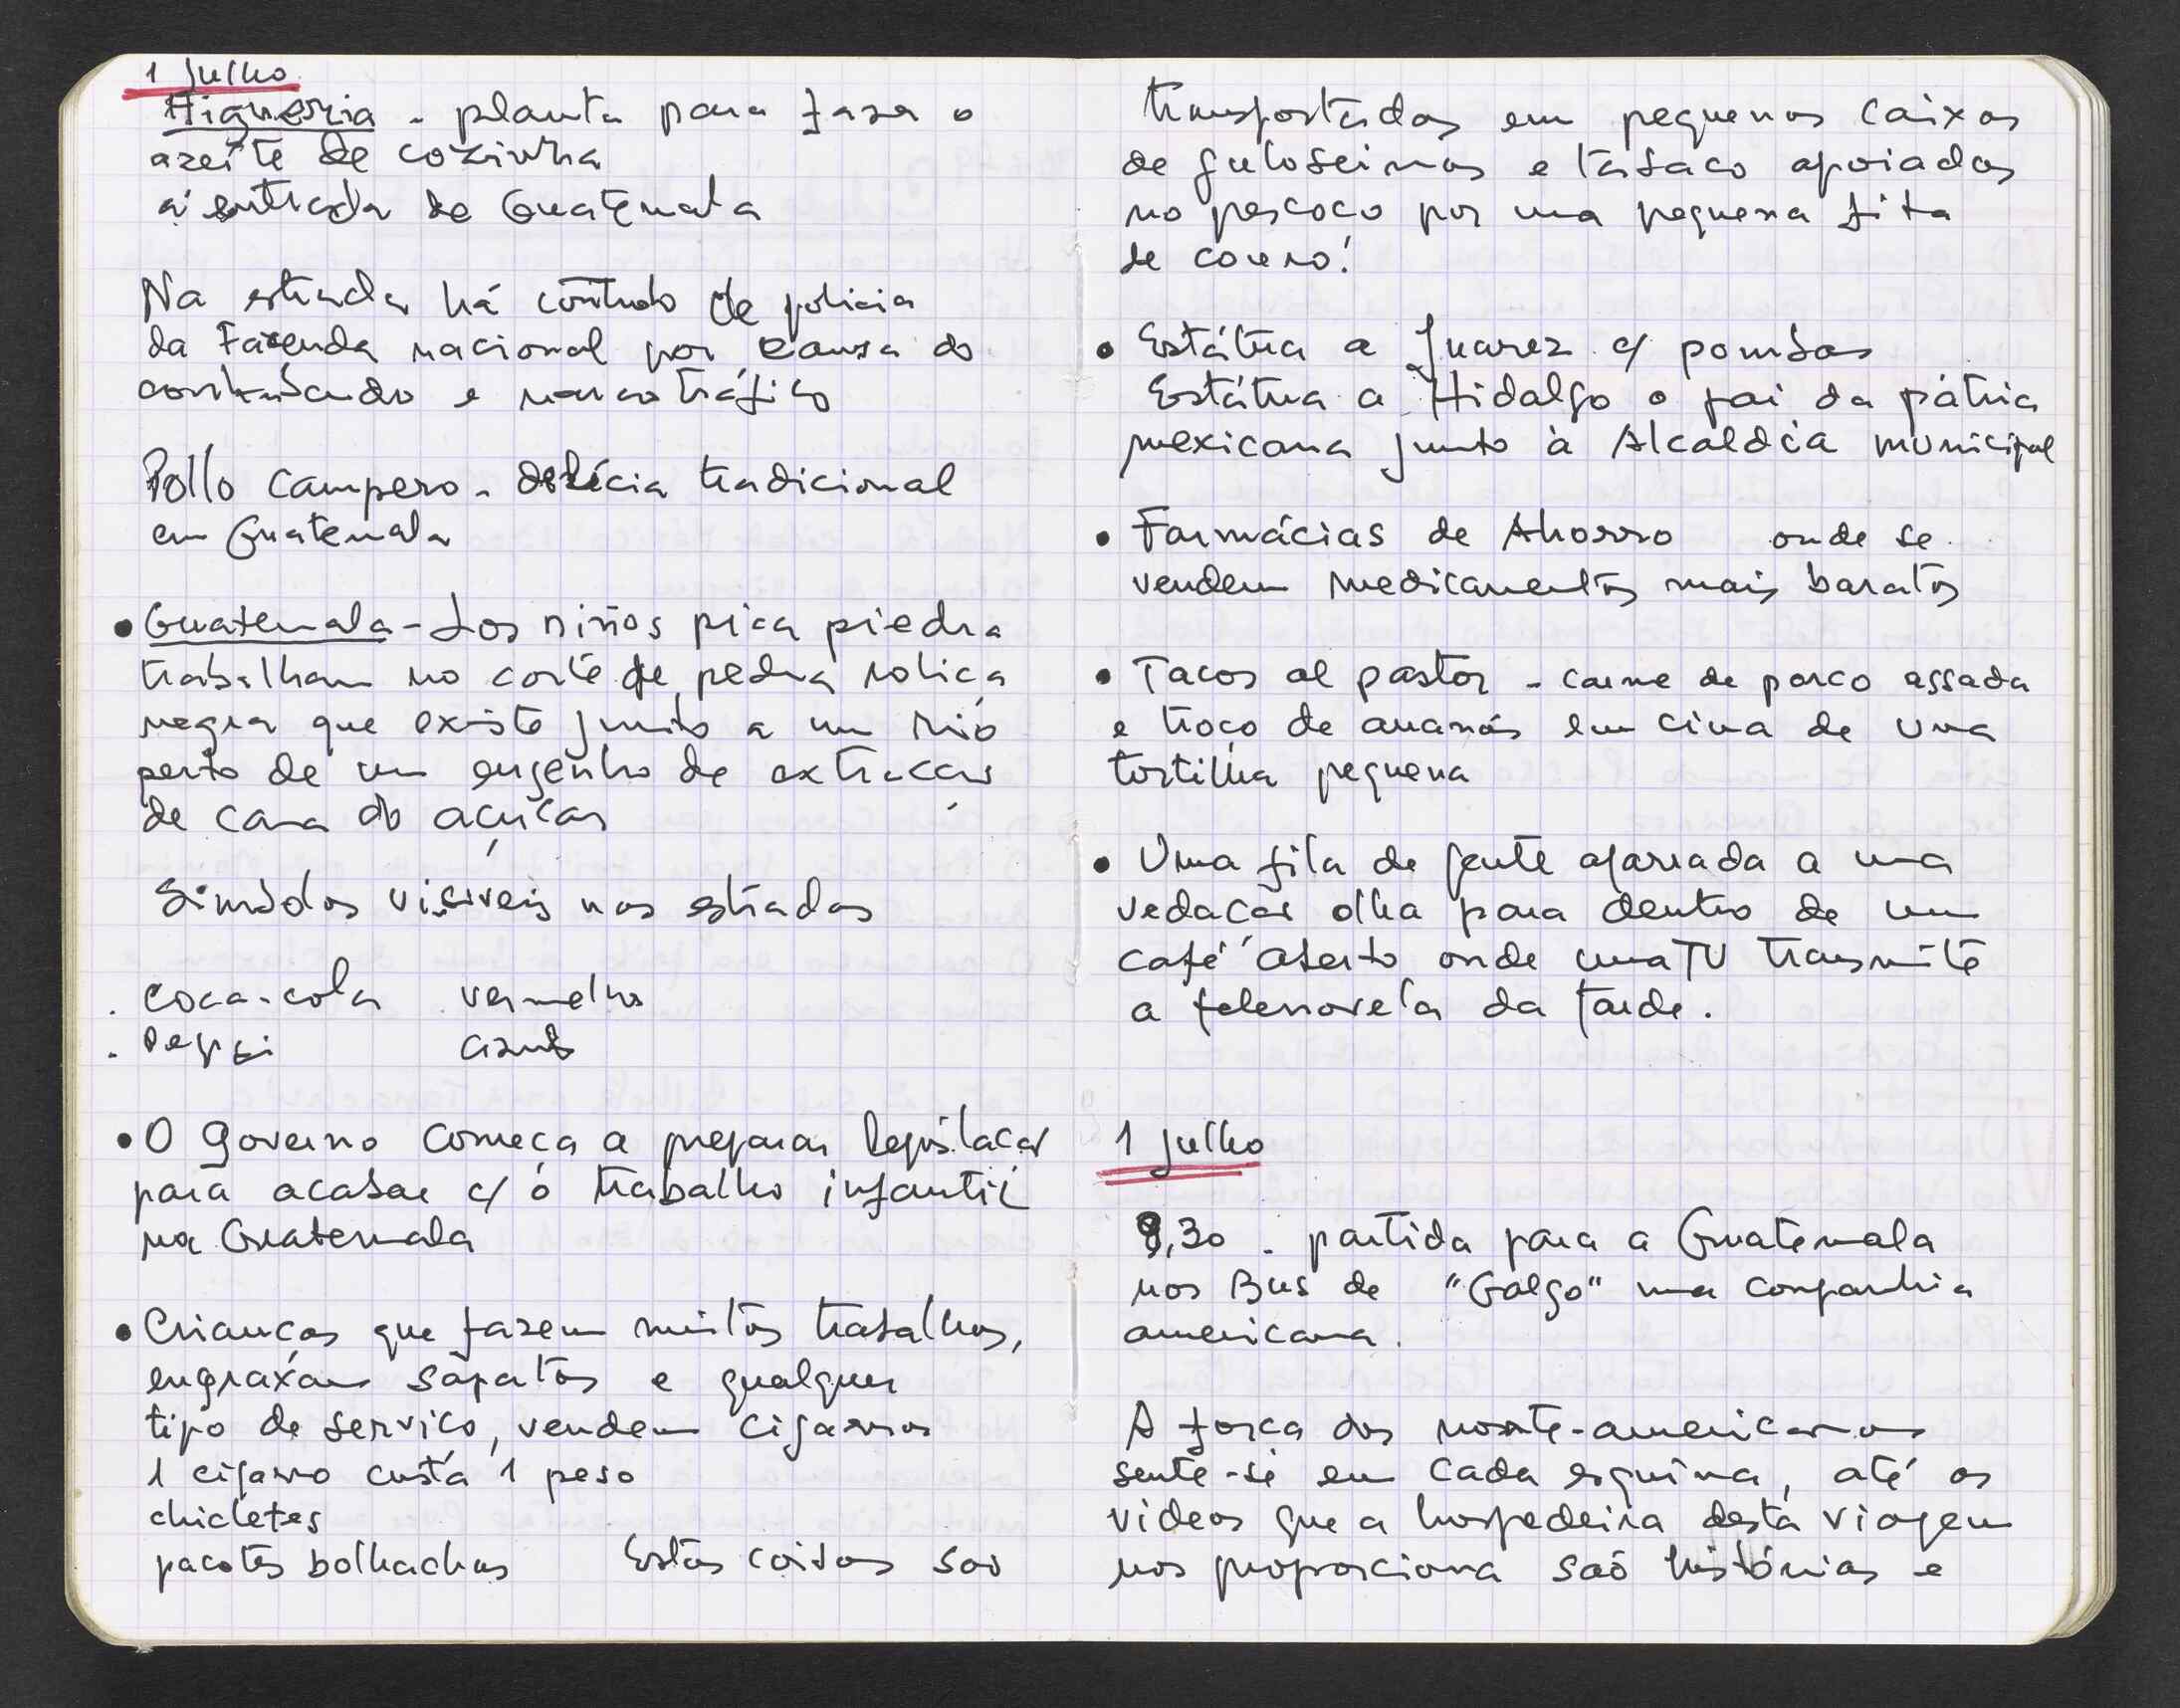 1 Julho
Higueria - planta para fazer o
azeite de cozinha
à entrada de Guatemala
Na estrada há contrôlo de policia
da Fazenda nacional por causa do
contrabando e narcotráfico
Pollo Campero - delícia tradicional
em Guatemala
• Guatemala - Los niños pica piedra
trabalham no corte de pedra roliça
negra que existe junto a um rio
perto de um engenho de extracção
de cana do açúcar
Simbolos visiveis nas estradas
. Coca-cola vermelho
. Pepsi azul
• O Governo começa a preparar legislação
para acabar c/ o trabalho infantil
na Guatemala
• Crianças que fazem muitos trabalhos,
engraxam sapatos e qualquer
tipo de serviço, vendem cigarros
1 cigarro custa 1 peso
chicletes
pacotes bolhachas Estas coisas são
transportadas em pequenas caixas
de guloseimas e tabaco apoiadas
no pescoço por uma pequena fita
de couro!
• Estátua a Juarez c/ pombas
Estátua a Hidalgo o pai da pátria
mexicana junto à Alcaldia municipal
• Farmácias de Ahorro onde se
vendem medicamentos mais baratos
• Tacos al pastor - carne de porco assada
e troço de ananás em cima de uma
tortilha pequena
• Uma fila de gente agarrada a uma
vedação olha para dentro de um
café aberto onde uma TV transmite
a telenovela da tarde.
1 Julho
8,30 - partida para a Guatemala
nos Bus de "Galgo" uma companhia
americana.
A força dos norte-americanos
sente-se em cada esquina, até os
videos que a hospedeira desta viagem
nos proporciona são histórias e